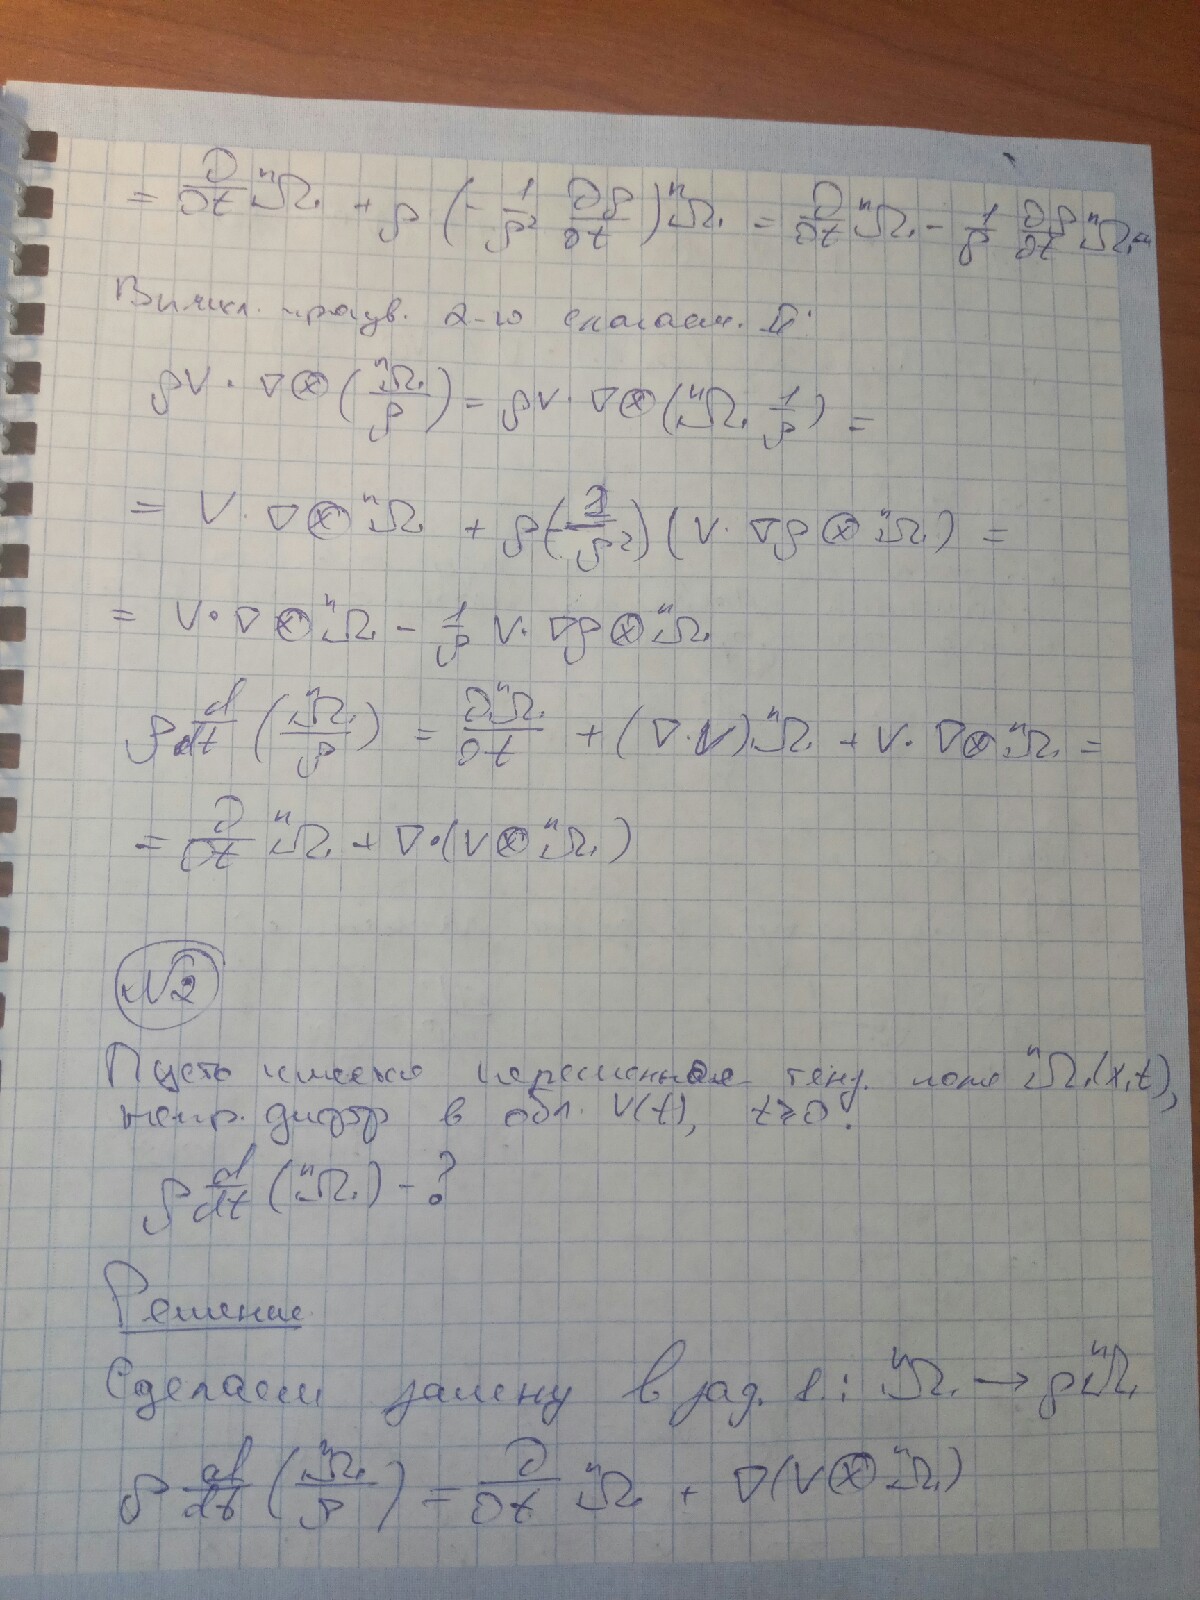 = ∂/∂t ⁿΩ + ρ (- 1/ρ² ∂ρ/∂t) ⁿΩ = ∂/∂t ⁿΩ - 1/ρ ∂ρ/∂t ⁿΩ
Вычисл. 2-го слагаем.
ρV · ∇⊗(ⁿΩ/ρ) = ρV · ∇⊗(ⁿΩ 1/ρ) =
= V · ∇⊗ⁿΩ + ρ(-1/ρ²)(V · ∇ρ⊗ⁿΩ) =
= V · ∇⊗ⁿΩ - 1/ρ V · ∇ρ⊗ⁿΩ
ρ d/dt (ⁿΩ/ρ) = ∂ⁿΩ/∂t + (∇·V)ⁿΩ + V · ∇⊗ⁿΩ =
= ∂/∂t ⁿΩ + ∇·(V⊗ⁿΩ)
№2
Пусть имеется переменное тенз. поле ⁿΩ(x,t),
непр. дифф в обл. V(t), t≥0.
ρ d/dt (ⁿΩ) - ?
Решение
Сделаем замену в зад. 1: ⁿΩ → ρⁿΩ
ρ d/dt (ⁿΩ/ρ) = ∂/∂t ⁿΩ + ∇(V⊗ⁿΩ)